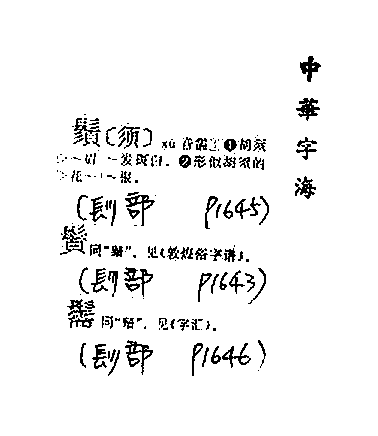 中華字海
鬚(须) xū 音需 ❶胡须
发斑白。❷形似胡须的
花~|~根。
(髟部 P1645)
同“鬚”。见《敦煌俗字谱》。
(髟部 P1643)
同“鬚”。见《字汇》。
(髟部 P1646)